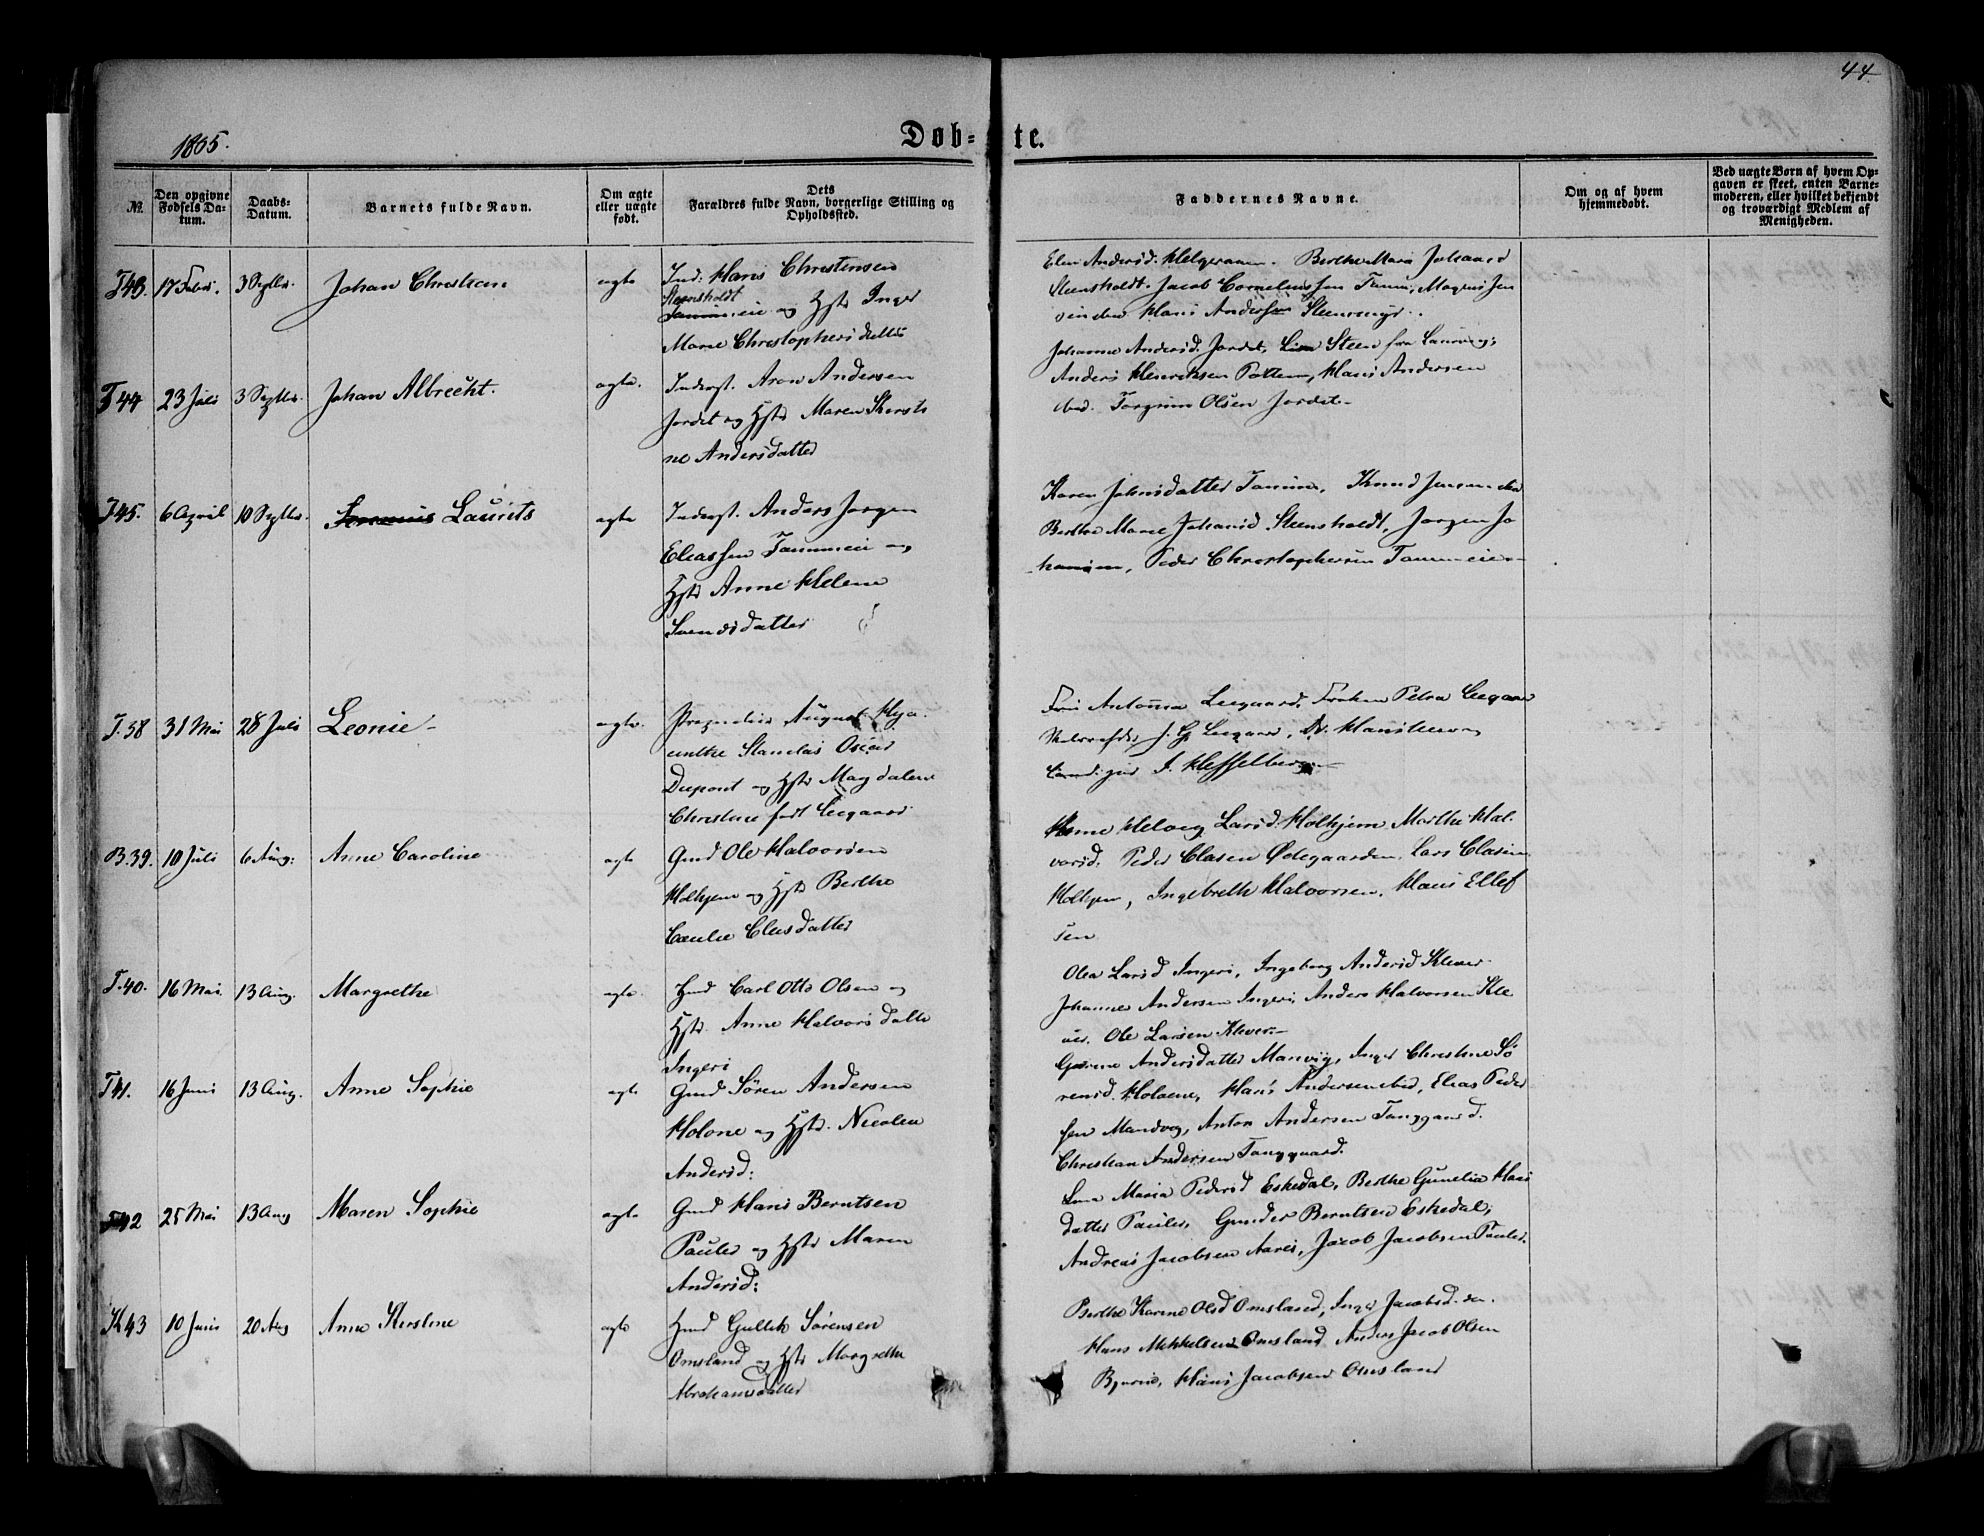 44.
1865.
Døb-te.
№
Den opgivne Fødsels Datum.
Daabs-Datum.
Barnets fulde Navn.
Om ægte eller uægte født.
Dets Forældres fulde Navn, borgerlige Stilling og Opholdssted.
Faddernes Navne.
Om og af hvem hjemmedøbt.
Ved uægte Børn af hvem Opgaven er skeet, enten Barnemoderen, eller hvilket bekjendt og troværdigt Medlem af Menigheden.
T43. 17 Febr. 3 Septbr. Johan Christian ægte
Ind. Hans Christensen
Steensholdt
Tammeie og Hstr Inger
Marie Christophersdatter
Elen Andersd. Helgeraaen. Berthe Maria Johansd
Steensholdt. Jacob Corneliussen Tamm, Magnus Jen
Hans Andersen Steensmyr.
T44 23 Juli 3 Septbr. Johan Albrecht. ægte.
Inderst. Aron Andersen
Jordet og Hstr Maren Kersti
ne Andersdatter
Johanne Andersd. Jordet, Steen fra Laurvig,
Anders Henriksen Hans Andersen
ibid. Torgrim Olsen Jordet
T45. 6 April 10 Septbr. Laurits ægte
Inderst. Anders Jørgen
Eliassen Tammeie og
Hstr Anne Helene
Svendsdatter
Karen Johnsdatter Tamm, Knud Jensen
Berthe Marie Johansd Steensholdt, Jørgen Jo
hansen, Peder Christophersen Tammeie
T.38 31 Mai 28 Juli Leonie ægte.
August Hya
cinthe Stanislas Oscar
Dupont og Hstr Magdalene
Christine født Leegaard
Antonia Leegaard, Frøken Petra Leegaard
J. G. Leegaard, Dr.
Cand. jur J. Hesselberg
B.39. 10 Juli 6 Aug: Anne Caroline ægte
Gmd Ole Halvorsen
Holhjem og Hstr Berthe
Cecilie Clasdatter
Anne Helvig Larsd. Holhjem Marthe Hal
vorsd. Peder Clasen Ødegaarden, Lars Clasen
Holhjem, Ingebreth Halvorsen, Hans Ellef
sen
T.40. 16 Mai. 13 Aug. Margrethe ægte.
Hmd Carl Otto Olsen og
Hstr. Anne Halvorsdatte
Ingeri
Olea Larsd Ingeri, Ingeborg Andersd Klever
Johannes Andersen Ingeri, Anders Halvorsen Kle
ver. Ole Larsen Klever.
T41. 16 Juni 13 Aug. Anne Sophie ægte
Gmd Søren Andersen
Holone og Hstr. Nicolea
Andersd:
Andersdatter Manvig, Inger Christine Sø
rensd. Holone, Hans Andersen ibid, Elias Peder
sen Manvig, Anton Andersen Fanggaard.
Christian Andersen Fanggaard.
T42 25 Mai 13 Aug Maren Sophie ægte
Gmd Hans Berntsen
Pauler og Hstr Maren
Andersd:
Maria Pedersd Eskedal, Berthe Gunelia Hans
datter Pauler, Gunder Berntsen Eskedal,
Andreas Jacobsen Aares, Jacob Jacobsen Pauler.
K43 10 Juni 20 Aug Anne Kerstine ægte
Hmd Gullik Sørensen
Omsland og Hstr Margrethe
Abrahamsdatter
Berthe Karine Olsd Omsland, Inger Jacobsd. do.
Hans Mikkelsen Omsland Anders Jacob Olsen
Hans Jacobsen Omsland